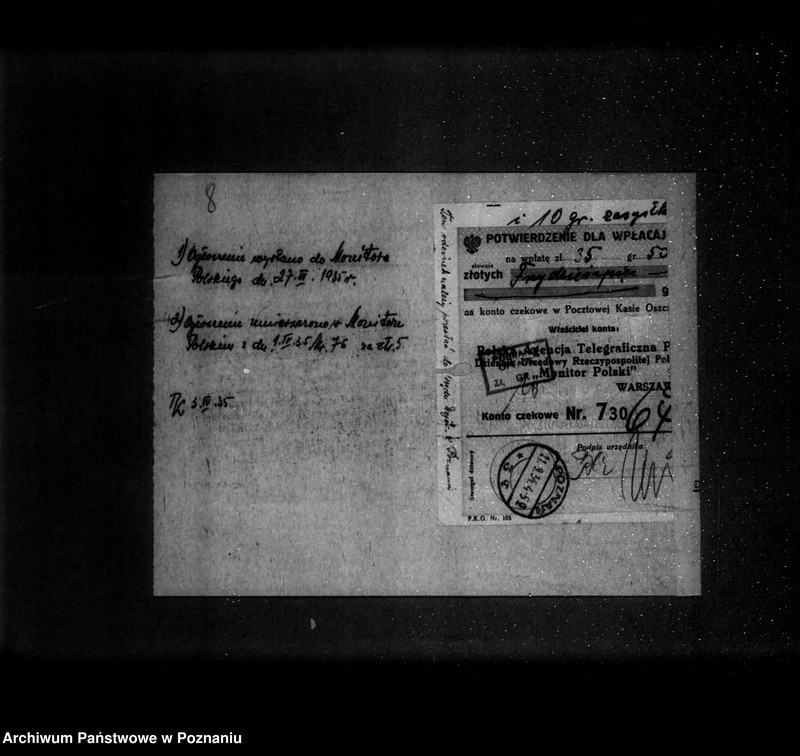 8
1) Ogłoszenie wysłano do Monitora
Polskiego dn. 27.III.1935r.
2) Ogłoszenie umieszczono w Monitorze
Polskim z dn. 1.IV.35 Nr. 76 za zł. 5.
3.IV.35
Ten odcinek należy przesłać do
i 10 gr.
POTWIERDZENIE DLA WPŁACAJ
na wpłatę zł. 35 gr 50
słownie
złotych
g
na konto czekowe w Pocztowej Kasie Oszcz
Właściciel konta:
Polska Agencja Telegraficzna P
Dziennik Urzędowy Rzeczypospolitej Pol
„Monitor Polski”
WARSZAW
ZŁ GR
Konto czekowe Nr. 730
64
Podpis urzędnika
POZNAŃ
P.K.O. Nr. 105
Archiwum Państwowe w Poznaniu